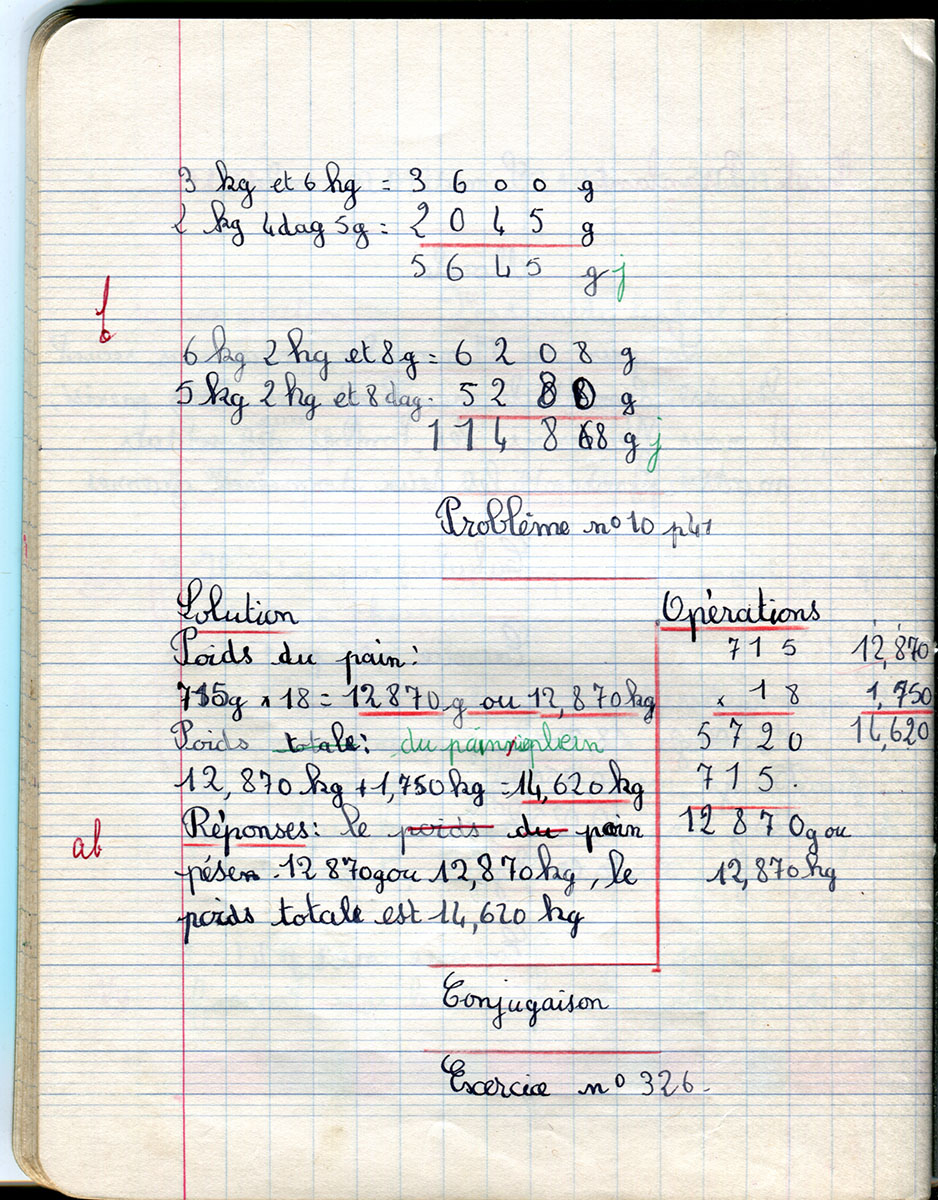 3 kg et 6 hg = 3 6 0 0 g
2 kg 4dag 5g = 2 0 4 5 g
5 6 4 5 g j
6 kg 2 hg et 8 g = 6 2 0 8 g
5 kg 2 hg et 8 dag. 5 2 8 0 g
1 1 4 8 8 g j
Problème n° 10 p41
Solution
Poids du pain :
715g × 18 = 12870g ou 12,870kg
Poids totale : du plein
12,870 kg + 1,750 kg = 14,620 kg
Réponses : le poids du pain
pésen 12870g ou 12,870 kg, le
poids totale est 14,620 kg
Opérations
715
× 18
5720
715.
12870g ou
12,870 kg
12,870
1,750
14,620
ab
Conjugaison
Exercice n° 326.